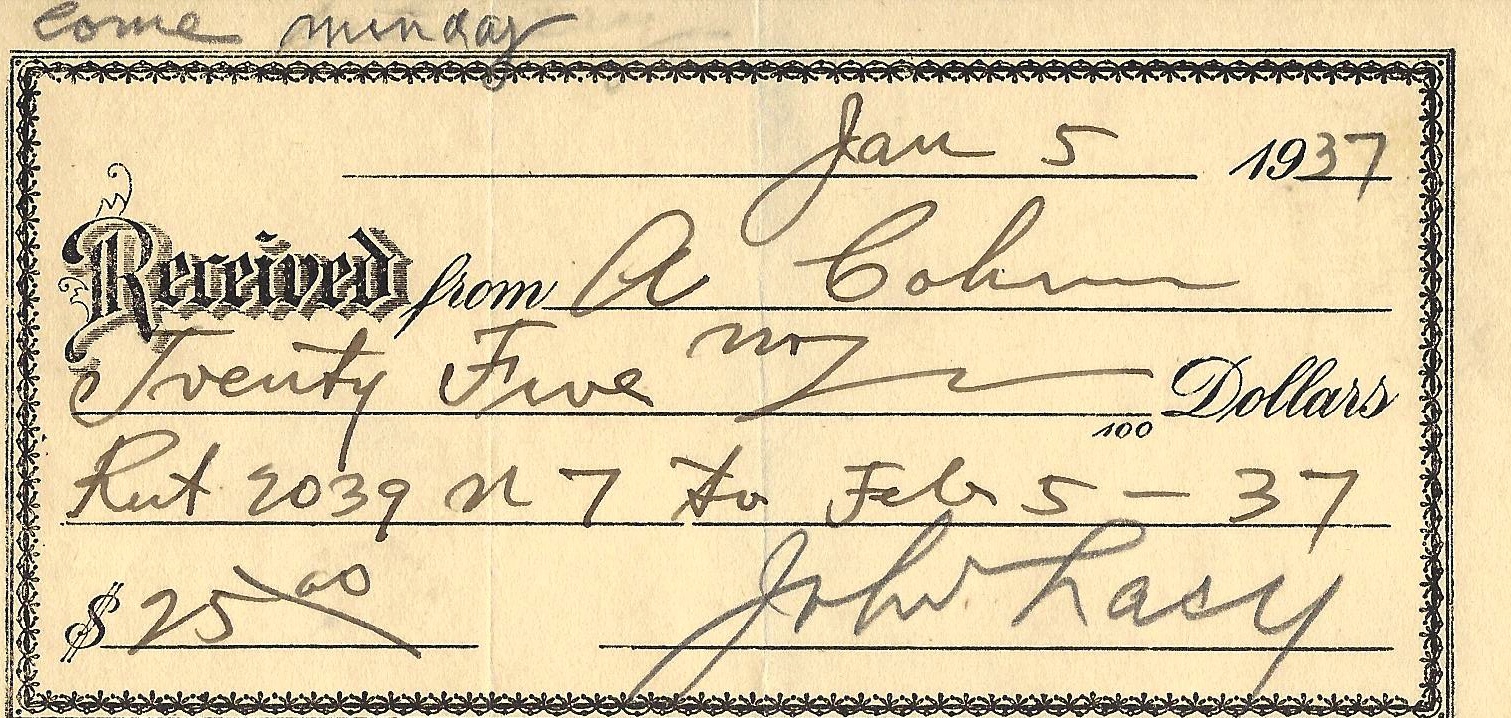 Come munday
Jan 5 1937
Received from A Cohen
Twenty Five no/100 Dollars
Rent 2039 N 7 to Feb 5 - 37
$ 25 00 John Lasy